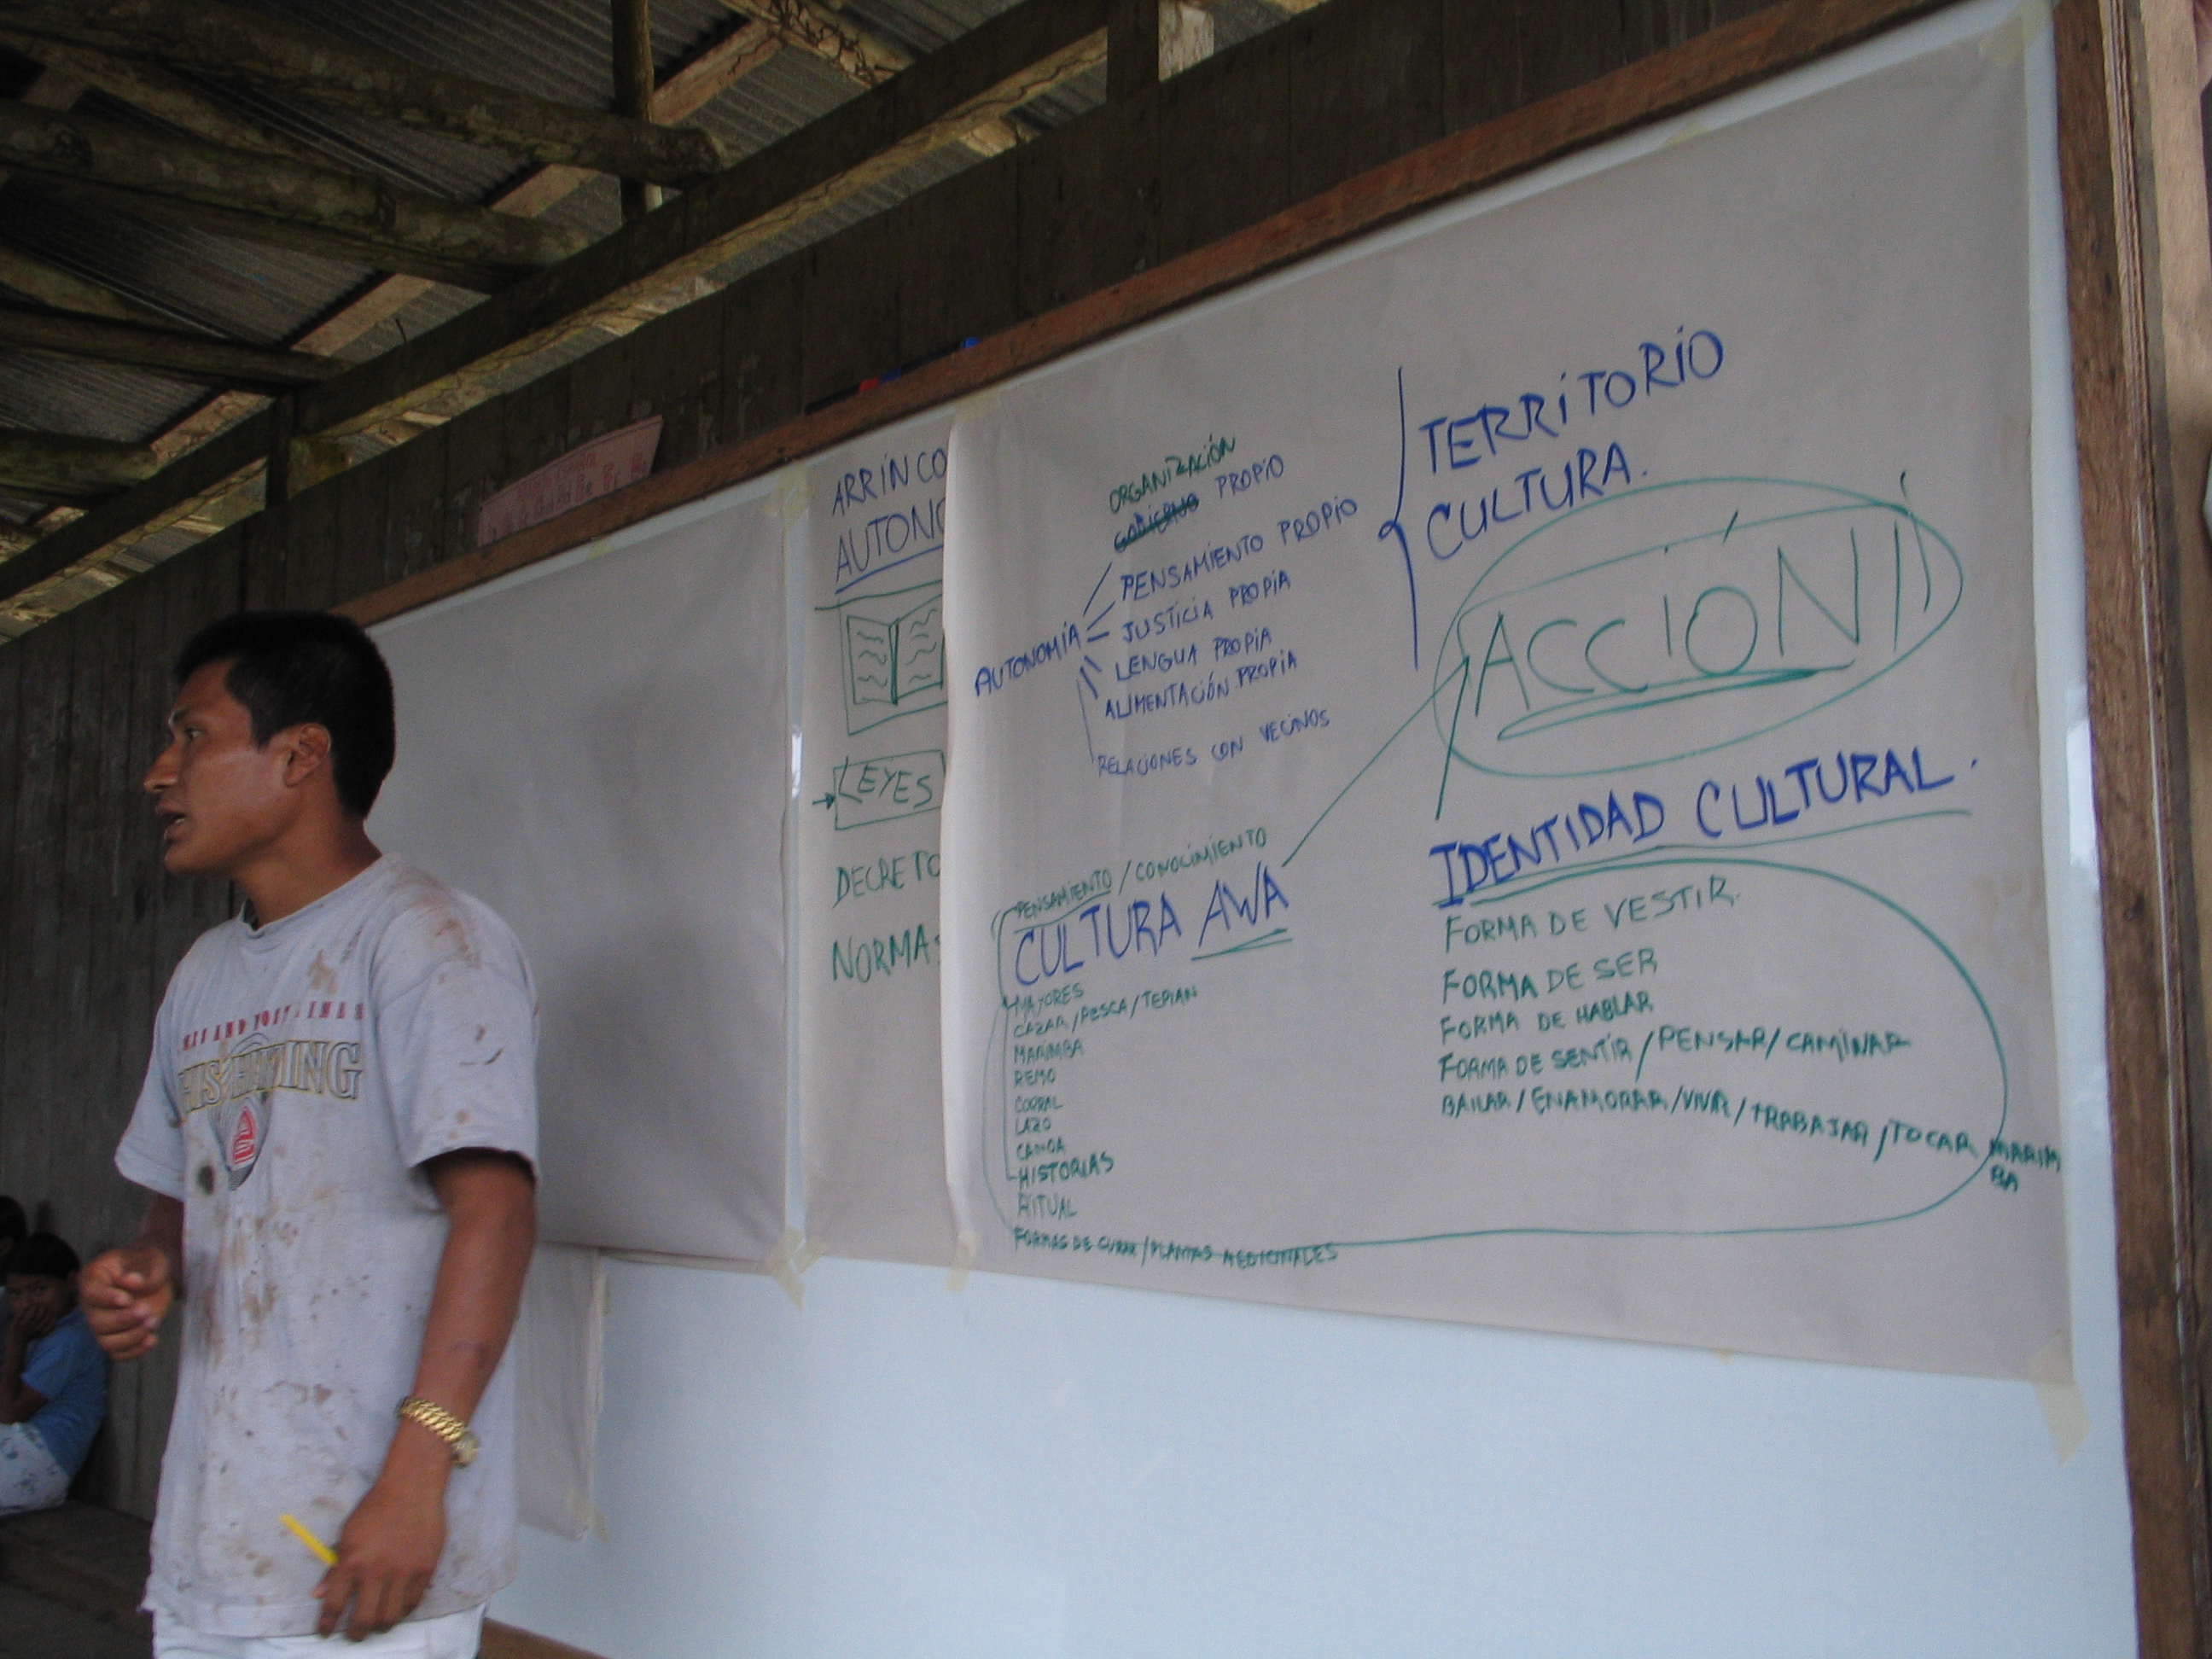 ARRINCO
AUTONO
LEYES
DECRETO
NORMAS
ORGANIZACIÓN
GOBIERNO PROPIO
PENSAMIENTO PROPIO
AUTONOMÍA
JUSTICIA PROPIA
LENGUA PROPIA
ALIMENTACIÓN PROPIA
RELACIONES CON VECINOS
TERRITORIO
CULTURA.
ACCIÓN!!
PENSAMIENTO / CONOCIMIENTO
CULTURA AWA
MAYORES
CAZAR / PESCA / TEPIAN
MARIMBA
REMO
CORRAL
LAZO
CANOA
HISTORIAS
RITUAL
FORMAS DE CURAR / PLANTAS MEDICINALES
IDENTIDAD CULTURAL.
FORMA DE VESTIR.
FORMA DE SER
FORMA DE HABLAR
FORMA DE SENTIR / PENSAR / CAMINAR
BAILAR / ENAMORAR / VIVIR / TRABAJAR / TOCAR MARIM
BA